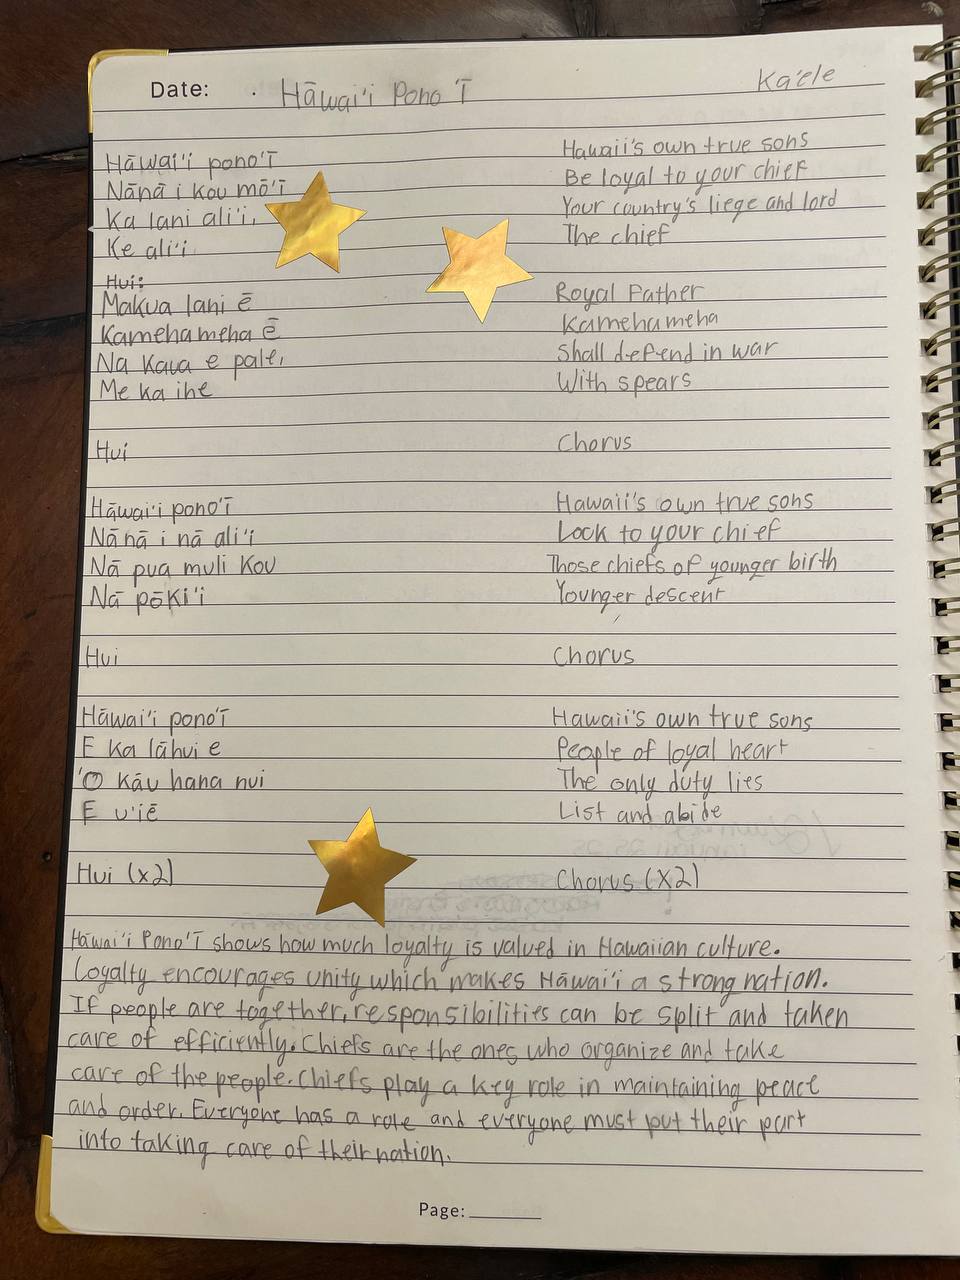 Date: Hāwai'i Pono 'Ī Ka'ele
Hāwai'i pono'ī
Nānā i kou mō'ī
Ka lani ali'i,
Ke ali'i
Hui:
Makua lani ē
Kamehameha ē
Na Kaua e pale,
Me ka ihe
Hui
Hāwai'i pono'ī
Nānā i nā ali'i
Nā pua muli Kou
Nā pōki'i
Hui
Hāwai'i pono'ī
E Ka lāhui e
'O Kāu hana nui
E u'iē
Hui (x2)
Hawaii's own true sons
Be loyal to your chief
Your country's liege and lord
The chief
Royal Father
Kamehameha
Shall defend in war
With spears
Chorus
Hawaii's own true sons
Look to your chief
Those chiefs of younger birth
Younger descent
Chorus
Hawaii's own true sons
People of loyal heart
The only duty lies
List and abide
Chorus (X2)
Hāwai'i Pono'Ī shows how much loyalty is valued in Hawaiian culture.
Loyalty encourages unity which makes Hāwai'i a strong nation.
If people are together, responsibilities can be split and taken
care of efficiently. Chiefs are the ones who organize and take
care of the people. Chiefs play a key role in maintaining peace
and order. Everyone has a role and everyone must put their part
into taking care of their nation.
Page: